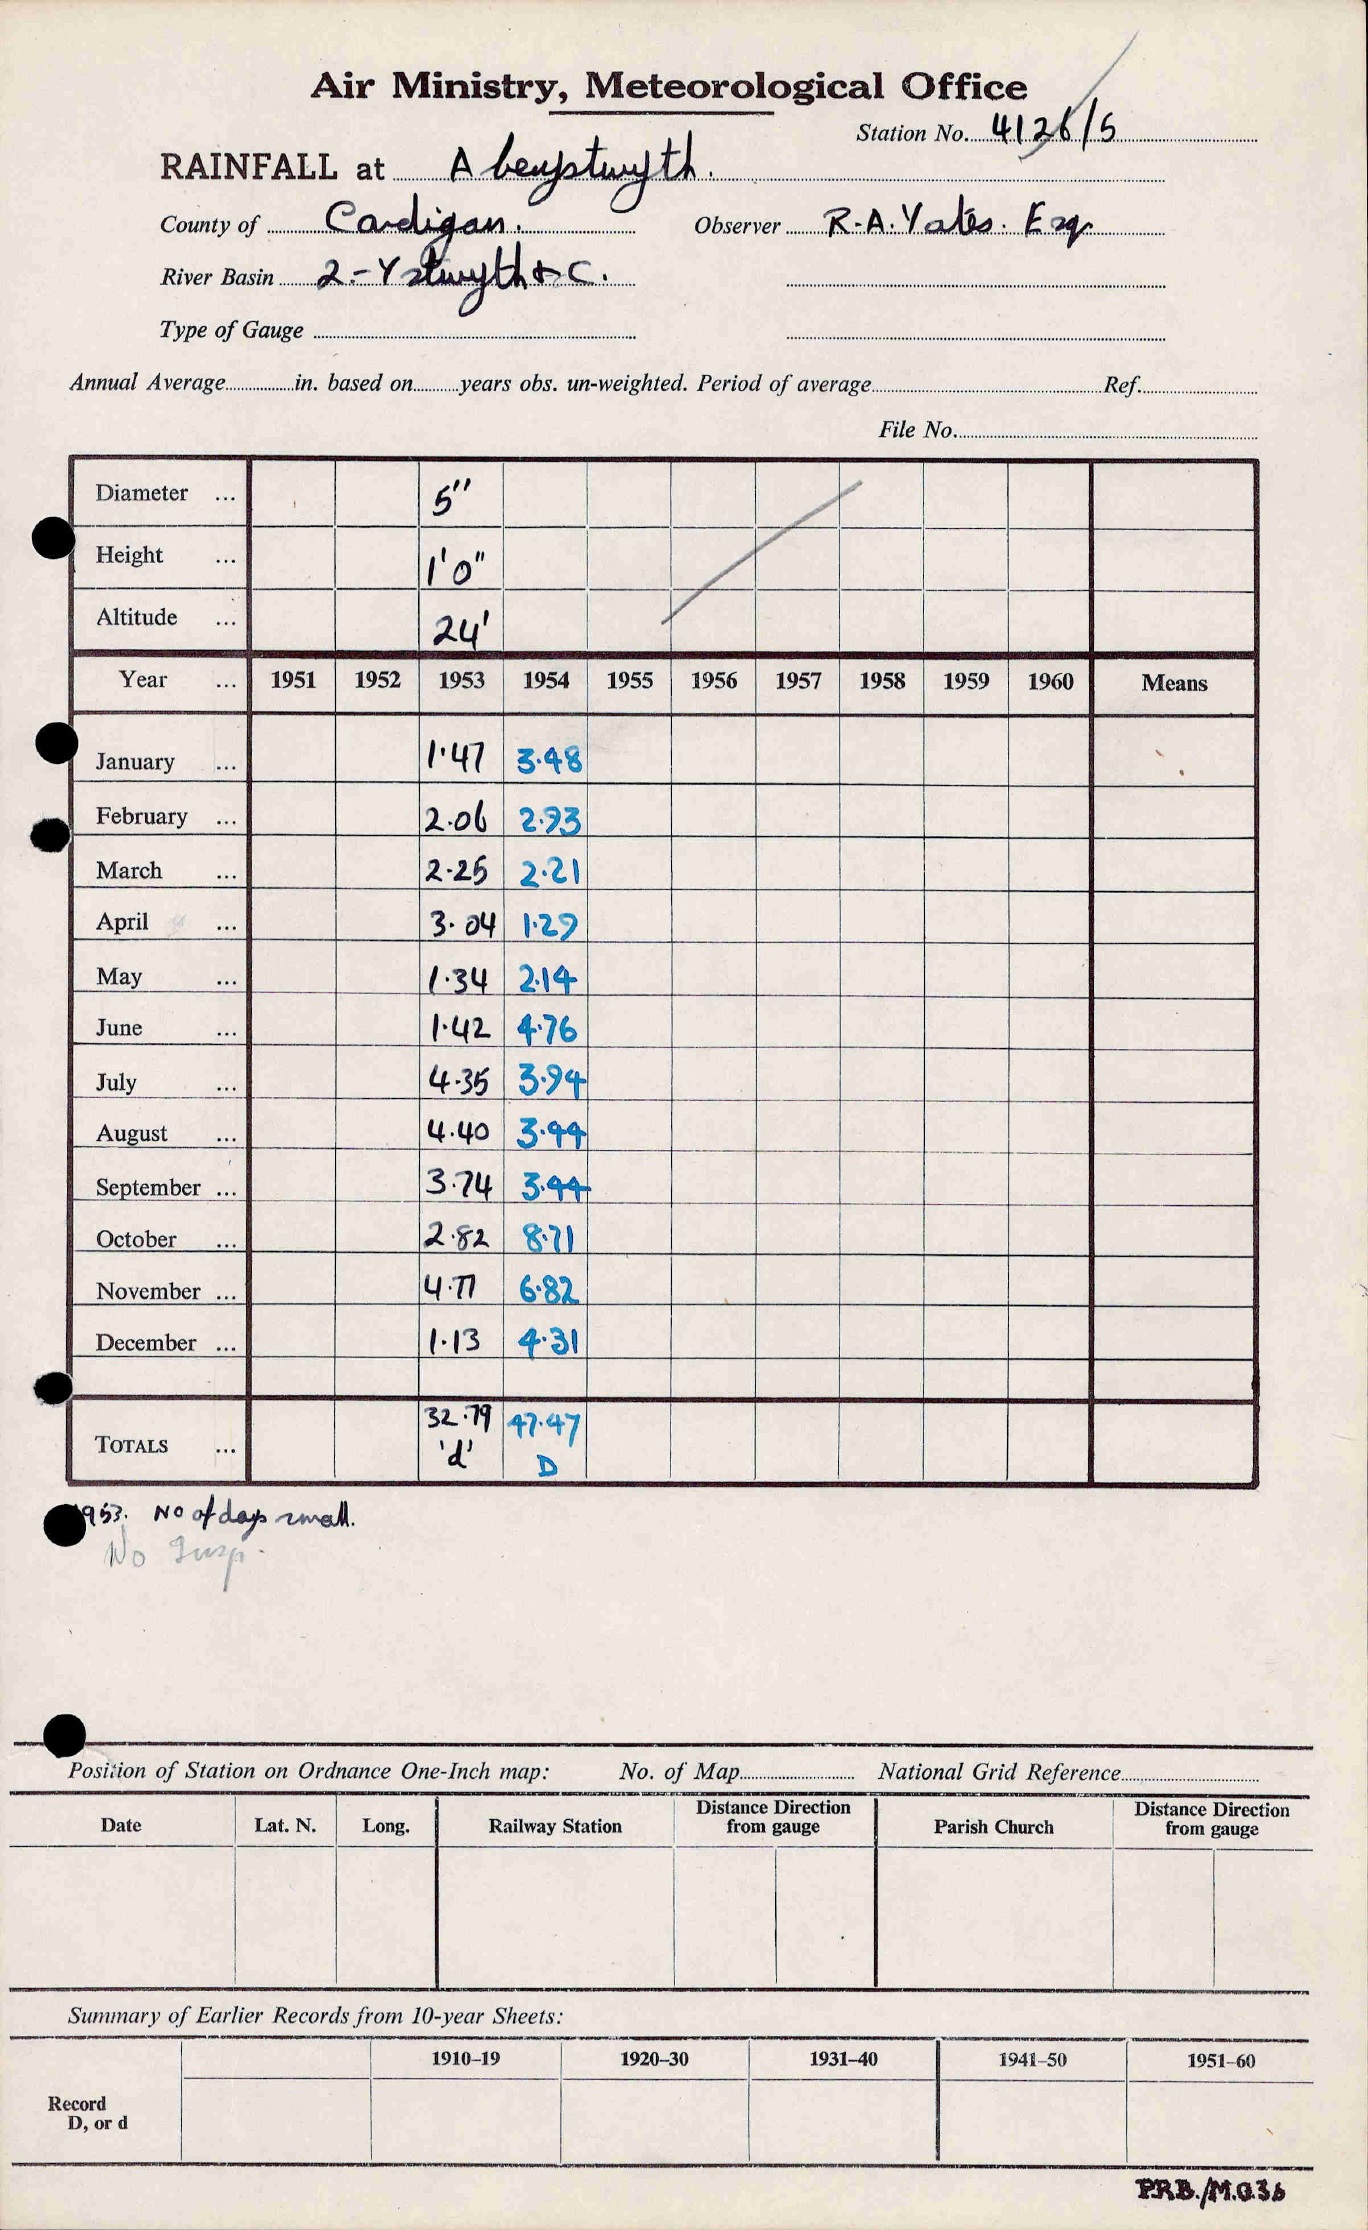 Air Ministry, Meteorological Office
Station No. 4126/5
RAINFALL at Aberystwyth.
County of Cardigan. Observer R.A. Yates. Esq
River Basin 2.-Ystwyth & C.
Type of Gauge
Annual Average in. based on years obs. un-weighted. Period of average Ref.
File No.
Diameter ... 5"
Height ... 1'0"
Altitude ... 24'
Year ... 1951 1952 1953 1954 1955 1956 1957 1958 1959 1960 Means
January ... 1.47 3.48
February ... 2.06 2.93
March ... 2.25 2.21
April ... 3.04 1.29
May ... 1.34 2.14
June ... 1.42 4.76
July ... 4.35 3.94
August ... 4.40 3.44
September ... 3.74 3.44
October ... 2.82 8.71
November ... 4.77 6.82
December ... 1.13 4.31
TOTALS ... 32.79 47.47
'd' D
1953. No of days small.
No Insp.
Position of Station on Ordnance One-Inch map: No. of Map National Grid Reference
Date Lat. N. Long. Railway Station Distance Direction from gauge Parish Church Distance Direction from gauge
Summary of Earlier Records from 10-year Sheets:
1910–19 1920–30 1931–40 1941–50 1951–60
Record
D, or d
P.R.B./M.O.3b